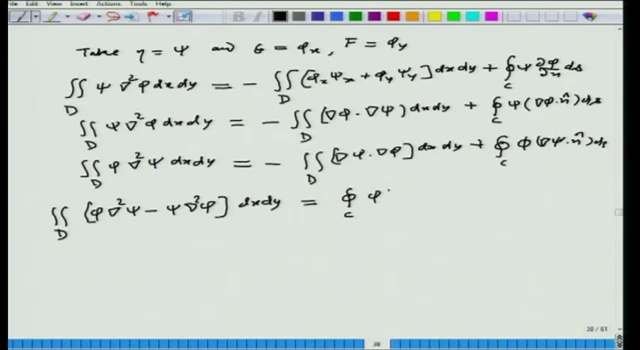 File Edit View Insert Actions Tools Help
Take η = ψ and G = φₓ, F = φ_y
∬_D ψ ∇²φ dx dy = − ∬_D [φₓψₓ + φ_yψ_y] dx dy + ∮_C ψ ∂φ/∂n ds
∬_D ψ ∇²φ dx dy = − ∬_D (∇φ · ∇ψ) dx dy + ∮_C ψ (∇φ · n̂) ds
∬_D φ ∇²ψ dx dy = − ∬_D [∇ψ · ∇φ] dx dy + ∮_C φ (∇ψ · n̂) ds
∬_D [φ∇²ψ − ψ∇²φ] dx dy = ∮_C φ
38 / 61
38